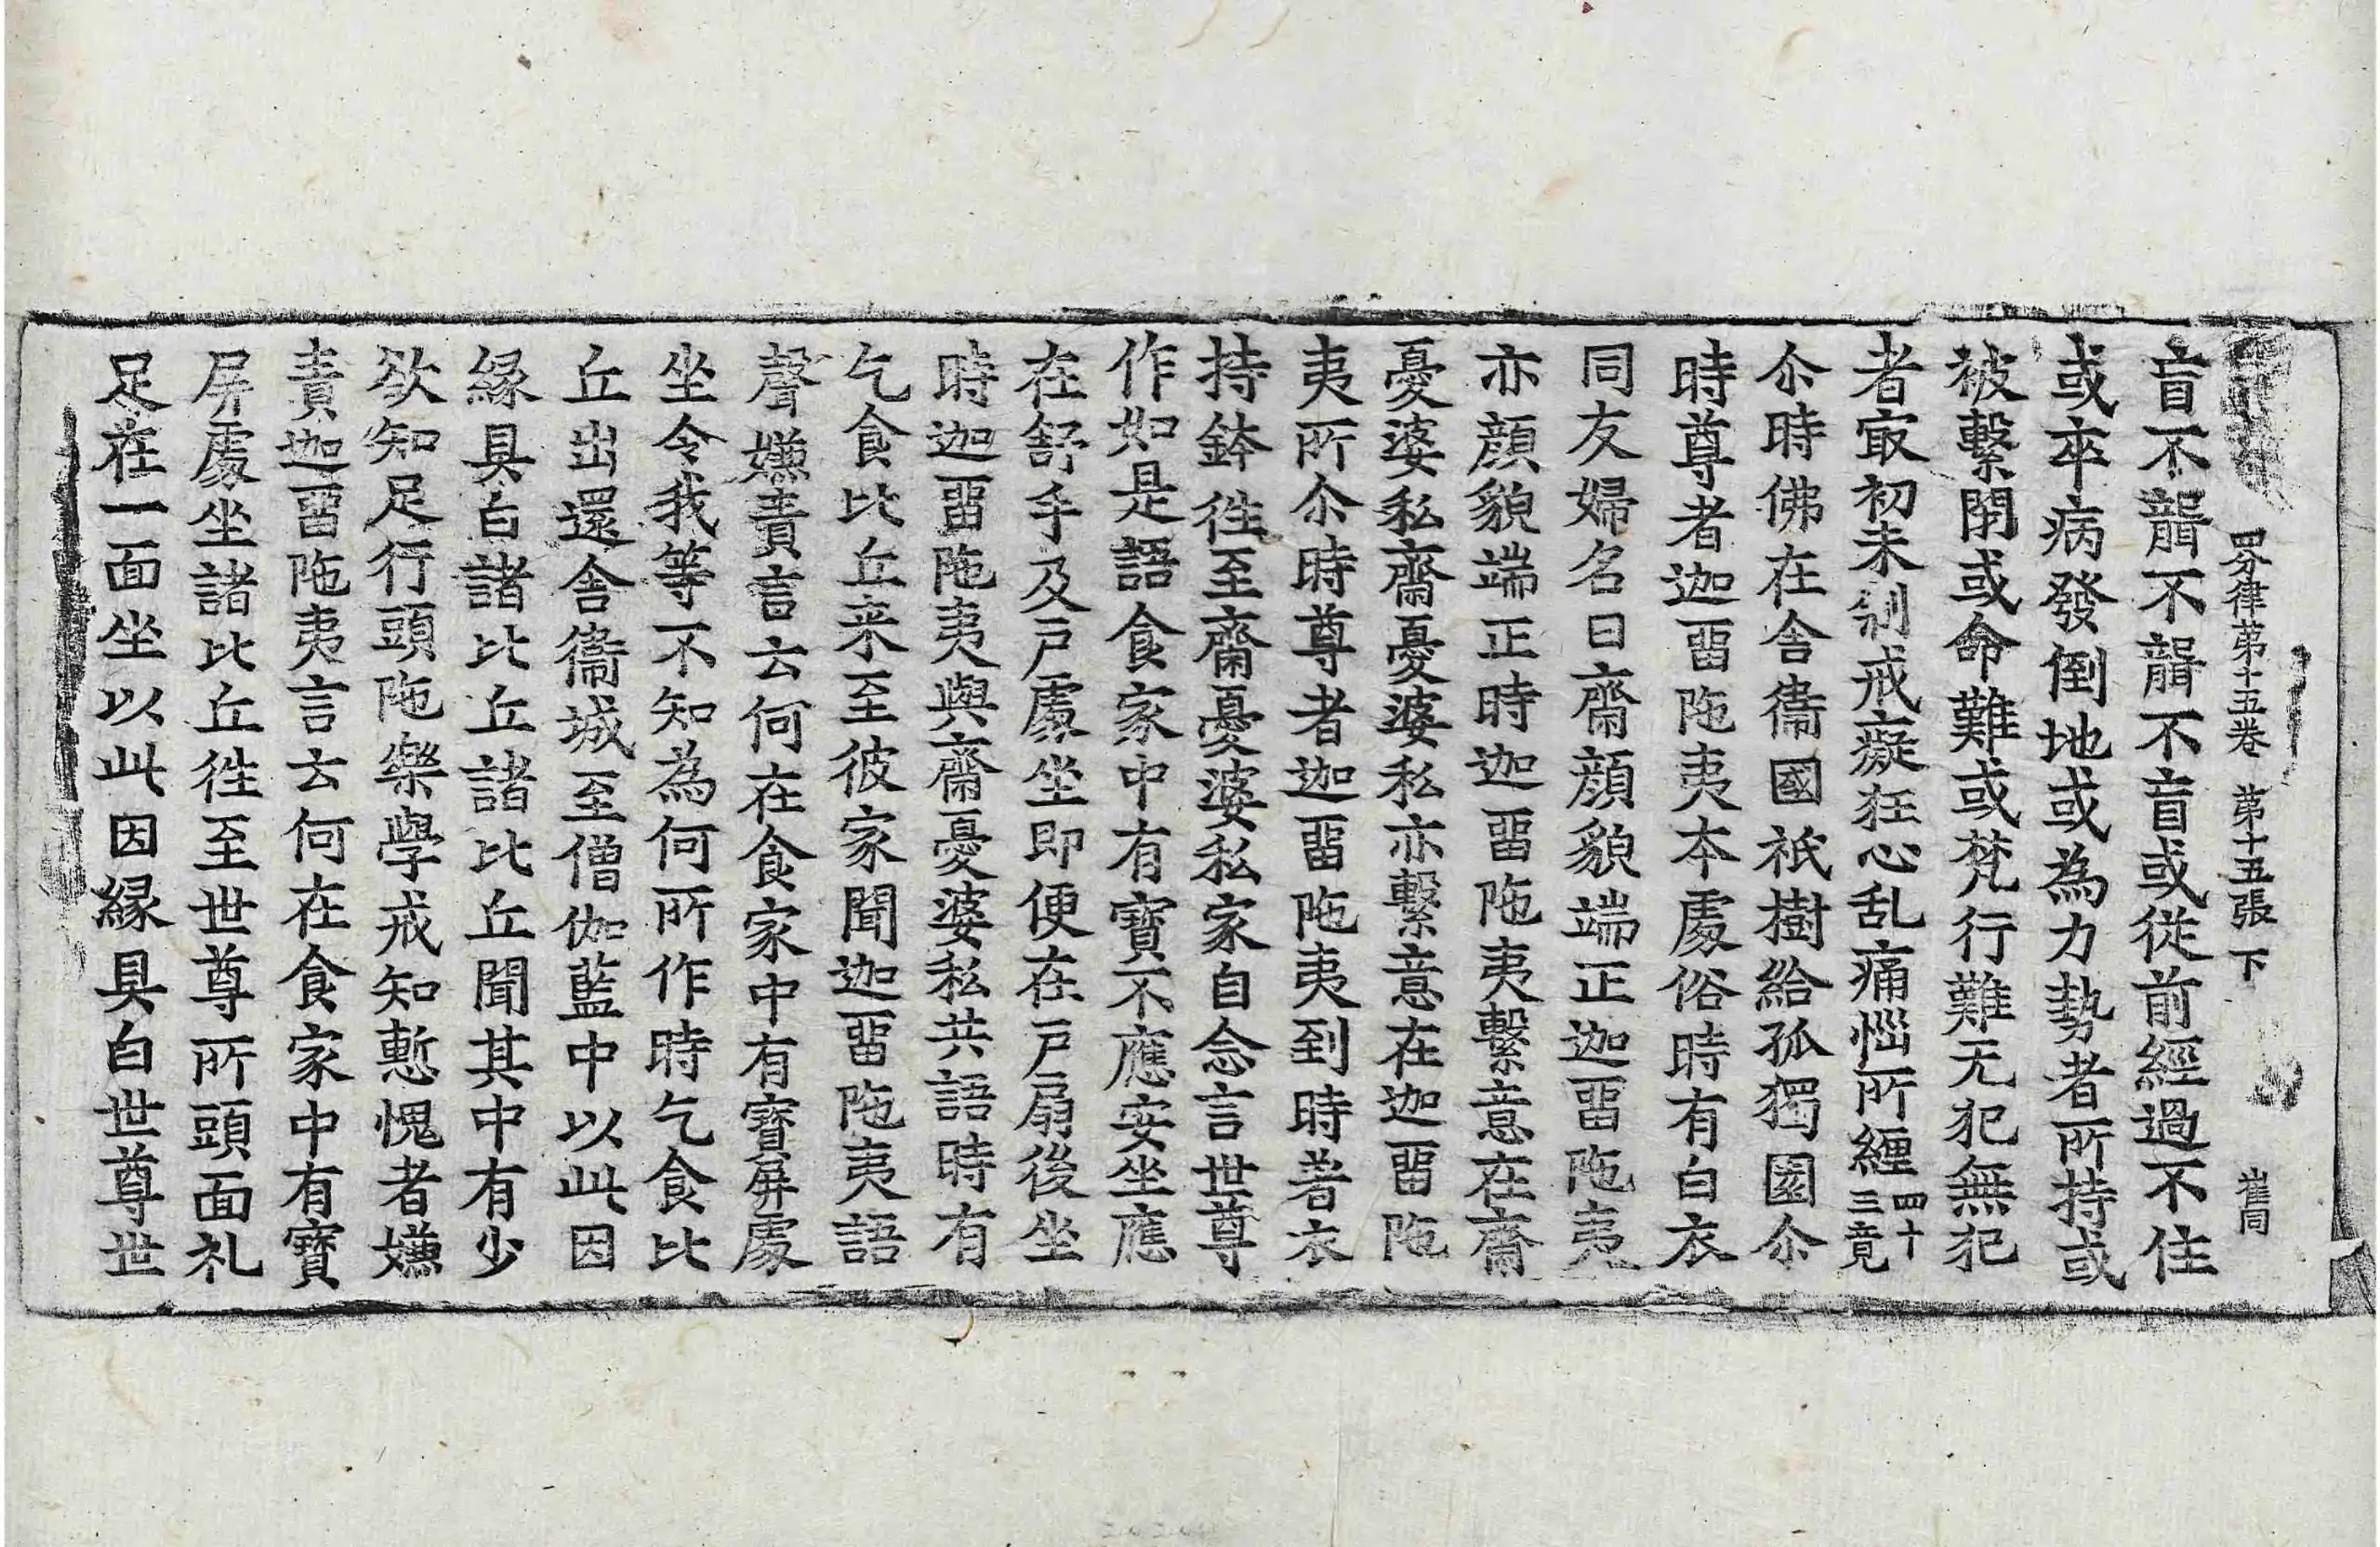 四分律第十五卷 第十五張 下 崔同
盲不聾不聾不盲或從前經過不住
或卒病發倒地或為力勢者所持或
被繫閉或命難或梵行難无犯無犯
者㝡初未制戒癡狂心乱痛惱所纏四十三竟
尒時佛在舍衛國祇樹給孤獨園尒
時尊者迦留陁夷本處俗時有白衣
同友婦名曰齋顏貌端正迦留陁夷
亦顏貌端正時迦留陁夷繫意在齋
憂婆私齋憂婆私亦繫意在迦留陁
夷所尒時尊者迦留陁夷到時著衣
持鉢徃至齋憂婆私家自念言世尊
作如是語食家中有寶不應安坐應
在舒手及戶處坐即便在戶扇後坐
時迦留陁夷與齋憂婆私共語時有
乞食比丘来至彼家聞迦留陁夷語
聲嫌責言云何在食家中有寶屏處
坐令我等不知為何所作時乞食比
丘出還舍衛城至僧伽藍中以此因
緣具白諸比丘諸比丘聞其中有少
欲知足行頭陁樂學戒知慙愧者嫌
責迦留陁夷言云何在食家中有寶
屏處坐諸比丘徃至世尊所頭面礼
足在一面坐以此因緣具白世尊世